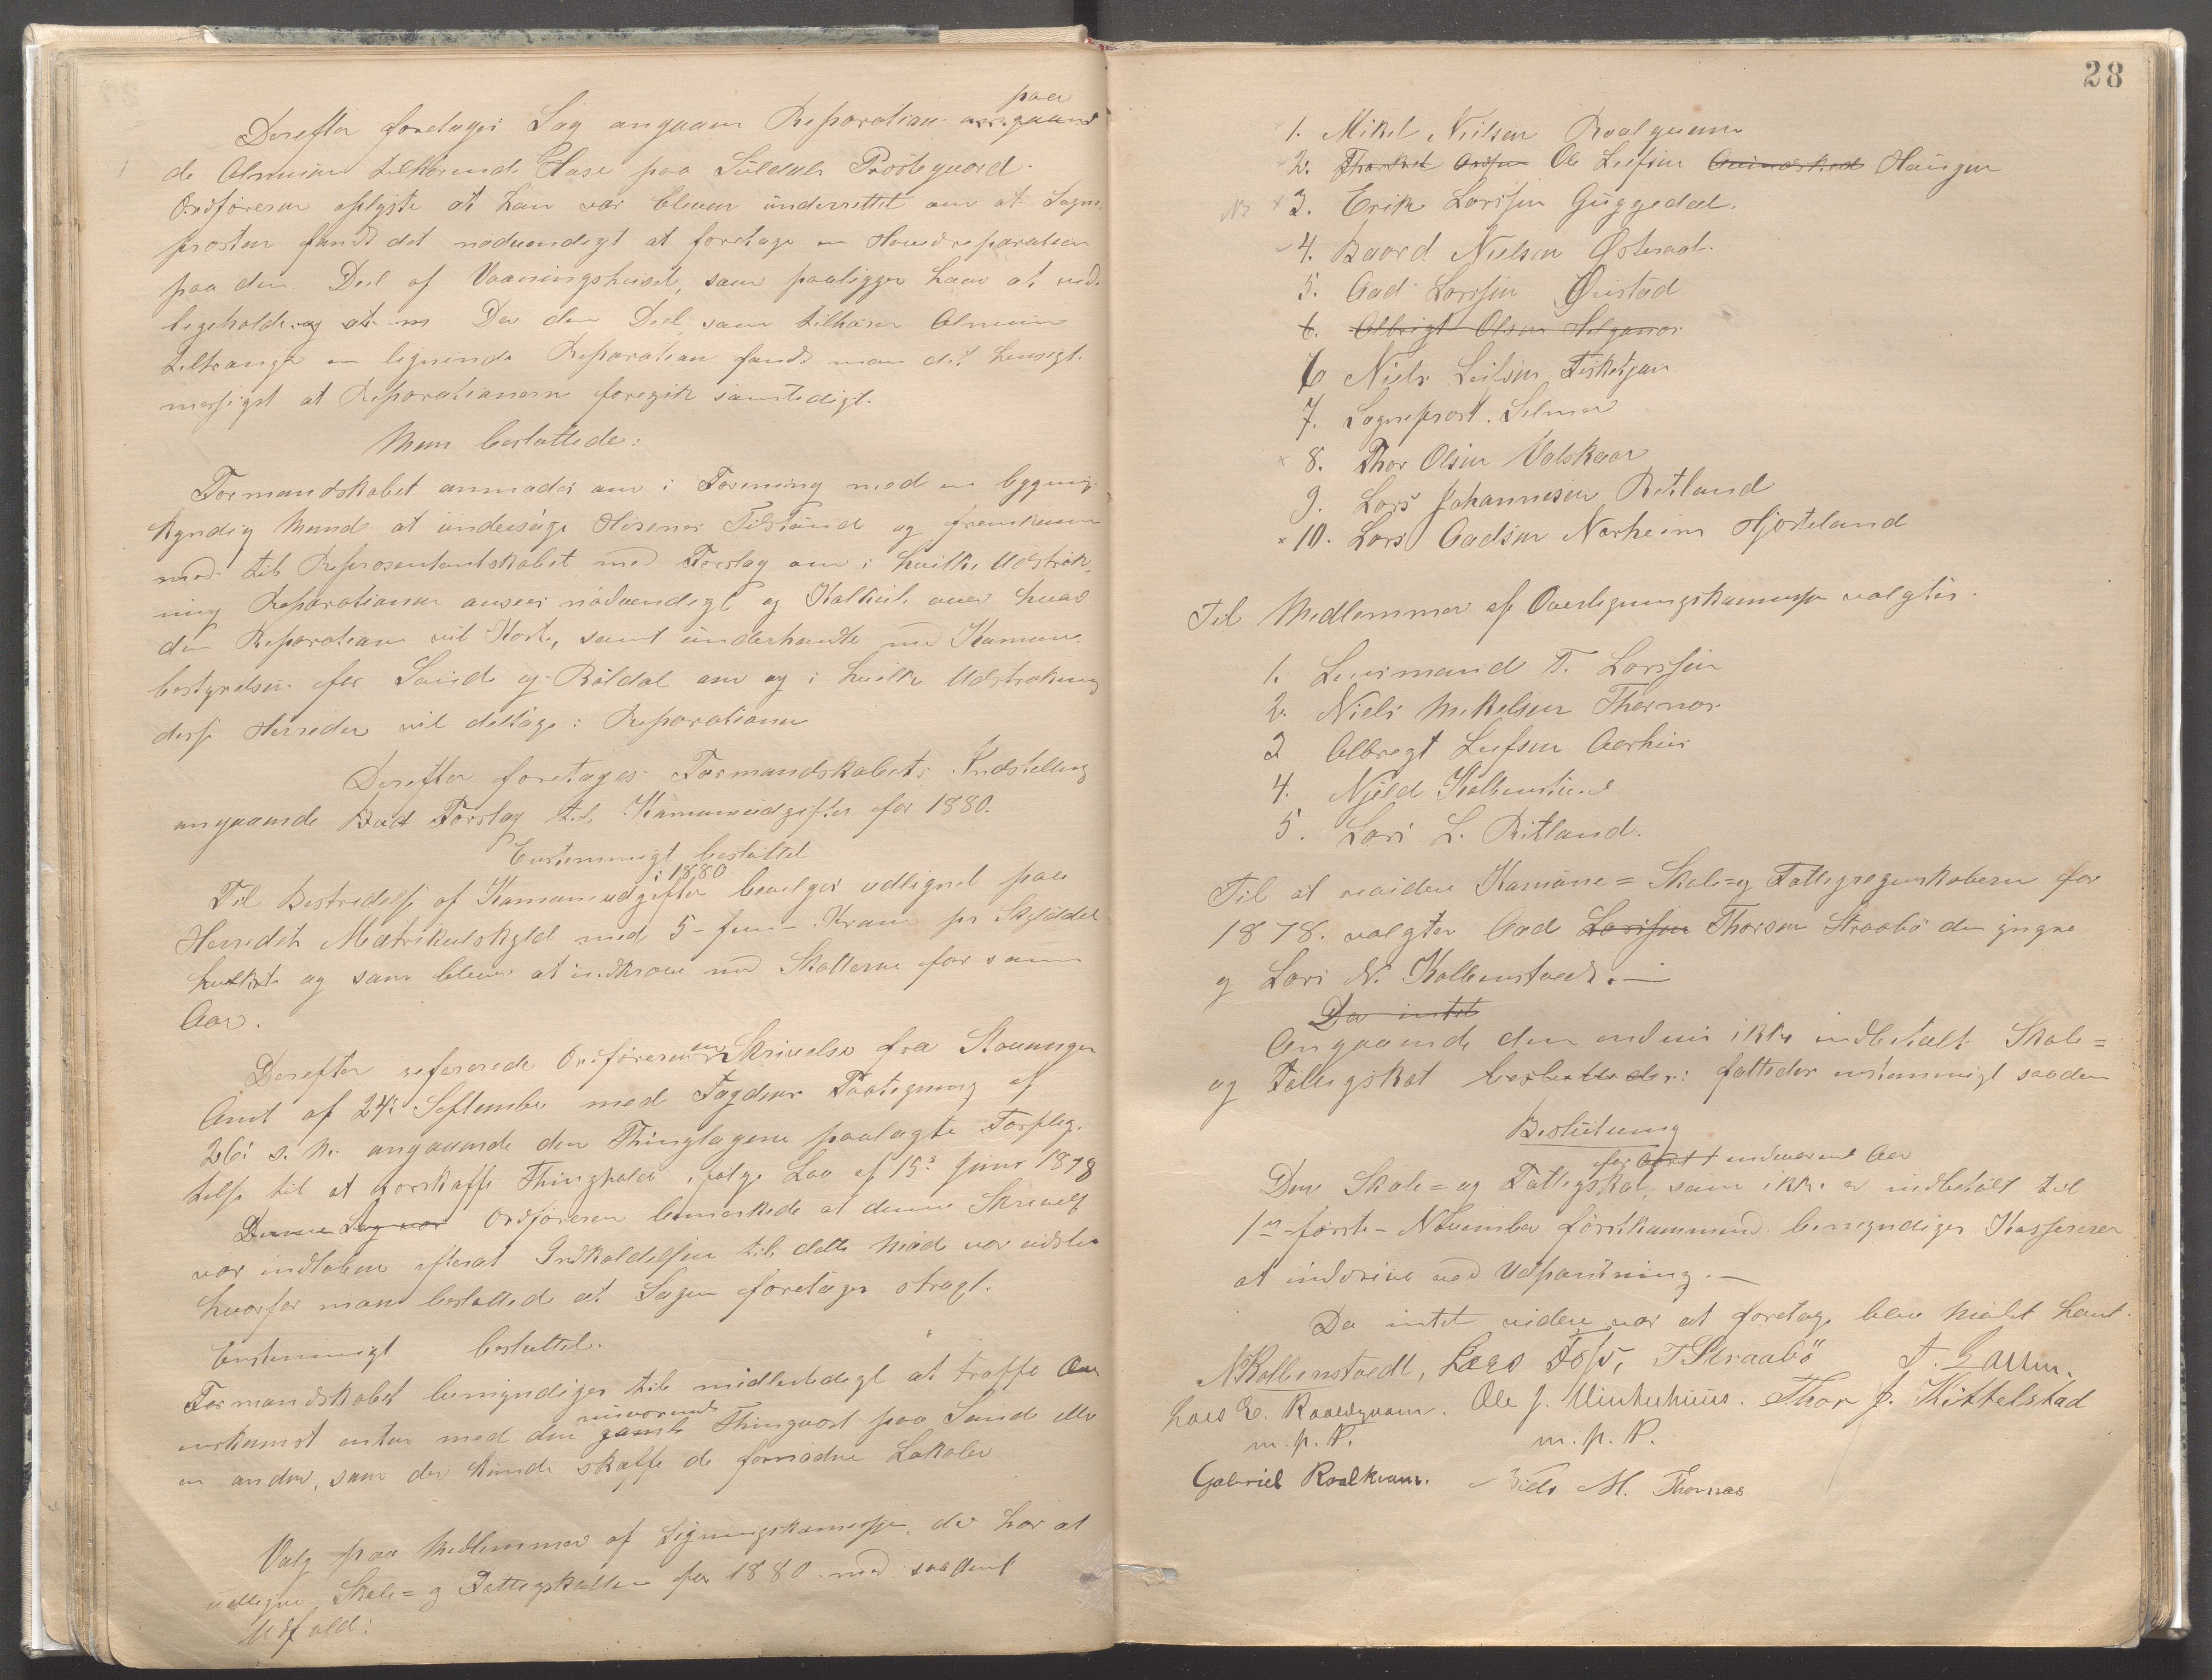 Derefter foretages Sag angaaen Reparation paa angaaend
de Almuen tilhørende Huse paa Suldals Prestegaard.
Ordføreren oplyste at han var bleven underrettet om at Sogne-
presten fandt det nødvendigt at foretage en Hovedreparation
paa den Deel af Vaaningshuset, som paaligger ham at ved-
ligeholde og at m Da den Deel, som tilhører Almuen
tiltrænger en lignende Reparation fandt man det hensigt-
mæssigst at Reparationerne foregik samtidigt.
Man besluttede:
Formandskabet anmodes om i Forening med en bygnings-
kyndig Mand at undersøge Husenes Tilstand og fremkomme
med til Repræsentantskabet med Forslag om i hvilken Udstræk-
ning Reparationen ansees nødvendigt og Kalkule over hvad
den Reparation vil koste, samt underhandle med Kommune-
bestyrelsen for Sand og Røldal om og i hvilken Udstrækning
disse Herreder vil deltage i Reparationen
Derefter foretages Formandskabets Indstilling
angaaende Bud Forslag til Kommuneudgifter for 1880.
Enstemmigt besluttet
i 1880
Til Bestridelse af Kommuneudgifter bevilges udlignet paa
Herredets Matrikulskyld med 5 - fem - Kroner pr Skylddaler
hvilket og som bliver at indkræve med Skatterne for samme
Aar.
Derefter refererede Ordføreren en Skrivelse fra Stavanger
Amt af 24de September med Fogdens Paategning af
26de s. M. angaaende den Thinglagene paalagte Forplig-
telse til at forskaffe Thinglokale ifølge Lov af 15de Juni 1878
Denne Sag var Ordføreren bemærkede at denne Skrivelse
var indløben efterat Indkaldelsen til dette Møde var udstedt
hvorfor man besluttede at Sagen foretages stragt.
Enstemmigt besluttet.
Formandskabet bemyndiges til midlertidigt at træffe Over-
enskomst enten med den gamle nuværende Thingvært paa Sand eller
en anden, som der kunde skaffe de fornødne Lokaler
Valg paa Medlemmer af Ligningskommission, der har at
udligne Skole= og Fattigskatten for 1880 med saadant
Udfald:
28
1. Mikel Nielsen Roalqvam
2. Thorkel Ole Leifsen Haugen
No x 3. Erik Larssen Guggedal.
4. Baard Nielsen Østeraal
5. Aad Larssen Quistad
6. Albrigt Olsen Helganæs
6 Niels Leifsen Fisketjøn
7. Sogneprest Selmer
x 8. Thor Olsen Valskaar
9. Lars Johannesen Ritland
x 10. Lars Aadsen Norheim Hjorteland
Til Medlemmer af Overligningskommission valgtes:
1. Lensmand T. Larssen
2. Niels Mikelsen Thornæs
3 Albregt Leifsen Aarhus
4. Njeld Kolbenstvedt
5. Lars L. Ritland.
Til at revidere Kommune= Skole= og Fattigregnskaberne for
1878 valgtes Aad Larssen Thorsen Straabø den yngre
og Lars N. Kolbenstvedt. —
Da intet
Angaaende den endnu ikke indbetalte Skole=
og Fattigskat besluttedes: fattedes enstemmigt saadan
Beslutning
for indeværende Aar
Den Skole= og Fattigskat, som ikke er indbetalt til
1ste - første - November førstkommende bemyndiges Kassereren
at inddrive ved Udpantning. —
Da intet videre var at foretage blev Mødet hævet.
N Kolbenstvedt, Lars Foss, T Straabø
Lars E. Roaldqvam. Ole J. Vinterhuus. Thor J. Kittelstad
m. p. P. m. p. P.
Gabriel Roalkvam. Niels M. Thornæs